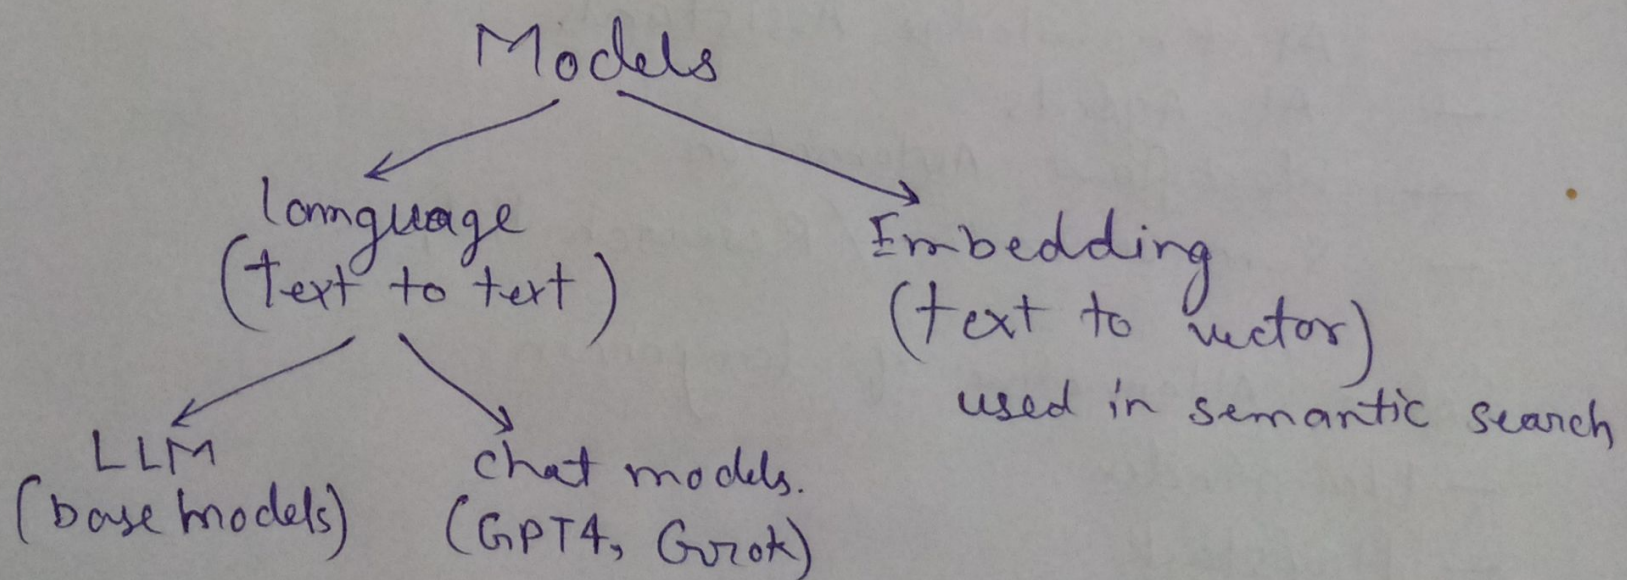 Models
language
(text to text)
Embedding
(text to vector)
used in semantic search
LLM
(base models)
chat models.
(GPT4, Grok)